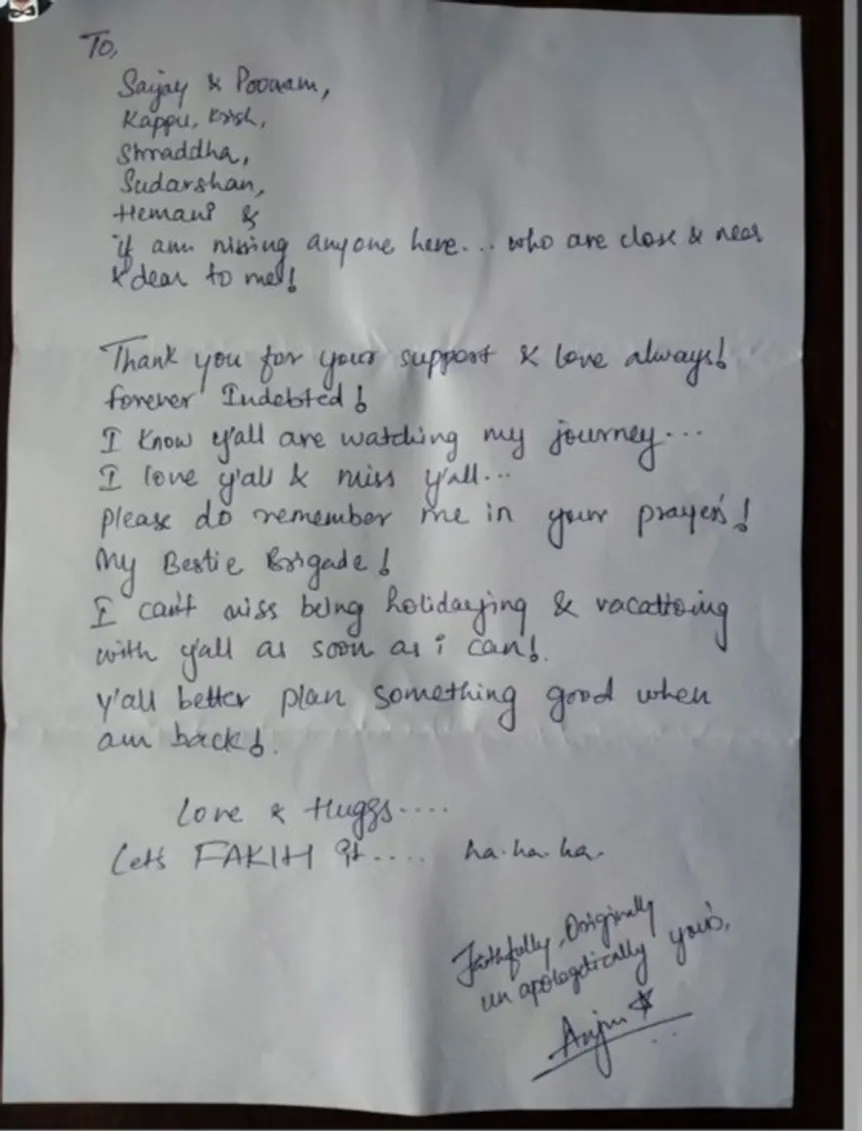 To,
Saijay & Poonam,
Kappu, Krish,
Shraddha,
Sudarshan,
Hemani &
if am missing anyone here... who are close & near
& dear to me!
Thank you for your support & love always!
forever Indebted!
I know y'all are watching my journey...
I love y'all & miss y'all...
please do remember me in your prayer's!
My Bestie Brigade!
I can't miss being holidaying & vacationing
with y'all as soon as i can!.
y'all better plan something good when
am back!.
Love & Huggs....
Let's FAKIH it.... ha.ha.ha.
Faithfully, Originally
un apologetically your's,
Anjum